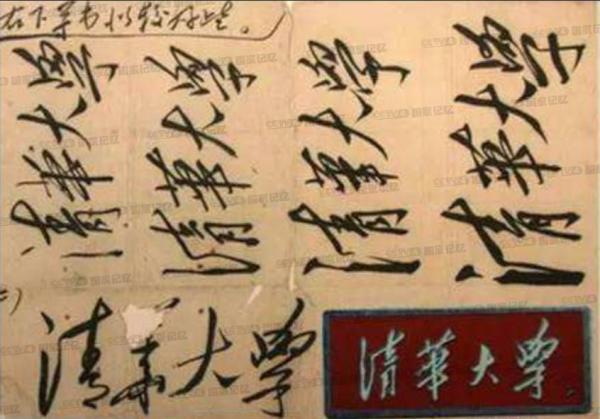 右下草书似较好些。
清華大學
清華大學
清華大學
清華大學
清華大學
清華大學
国家记忆